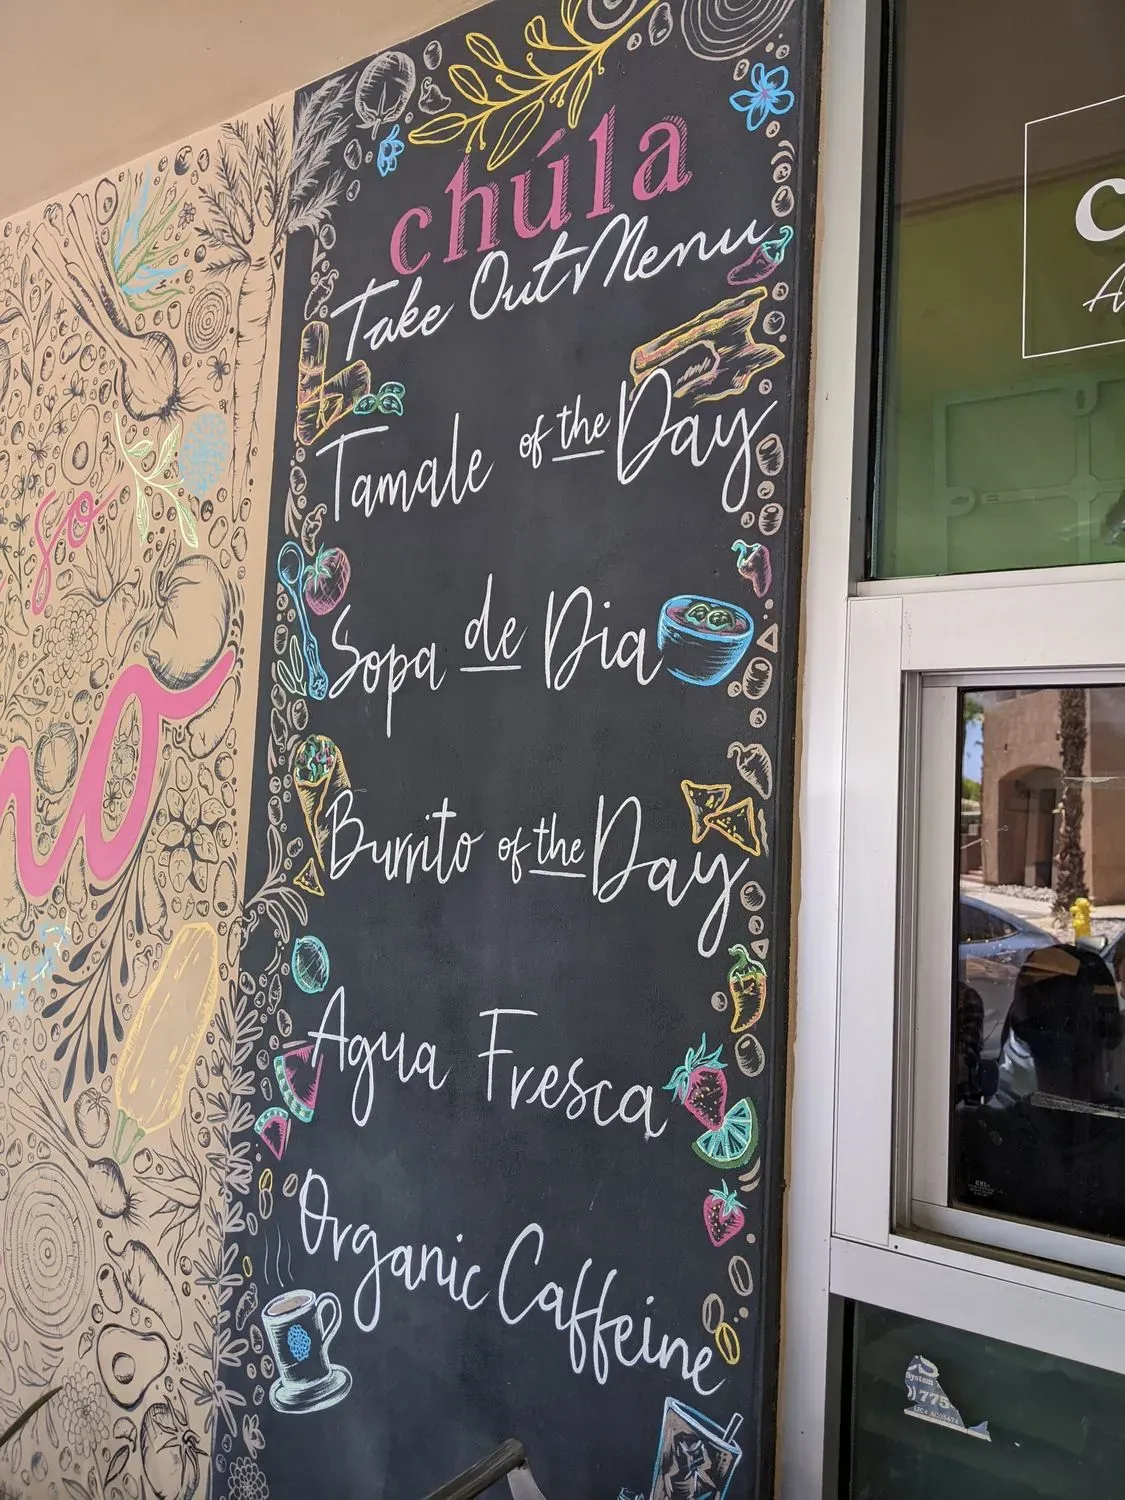 chúla
Take Out Menu
Tamale of the Day
Sopa de Dia
Burrito of the Day
Agua Fresca
Organic Caffeine
so
System
775